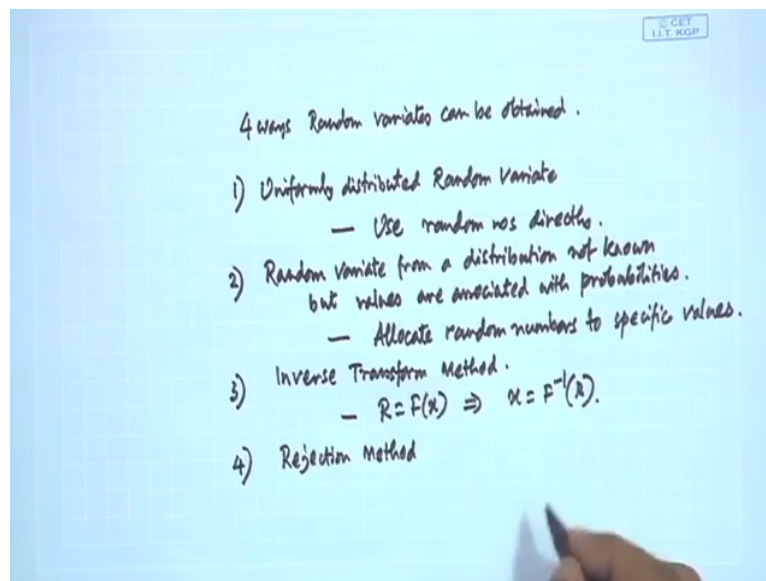 © CET
I.I.T. KGP
4 ways Random variates can be obtained.
1) Uniformly distributed Random Variate
— Use random nos directly.
2) Random variate from a distribution not known
but values are associated with probabilities.
— Allocate random numbers to specific values.
3) Inverse Transform Method.
— R = F(x) ⇒ x = F⁻¹(R).
4) Rejection Method